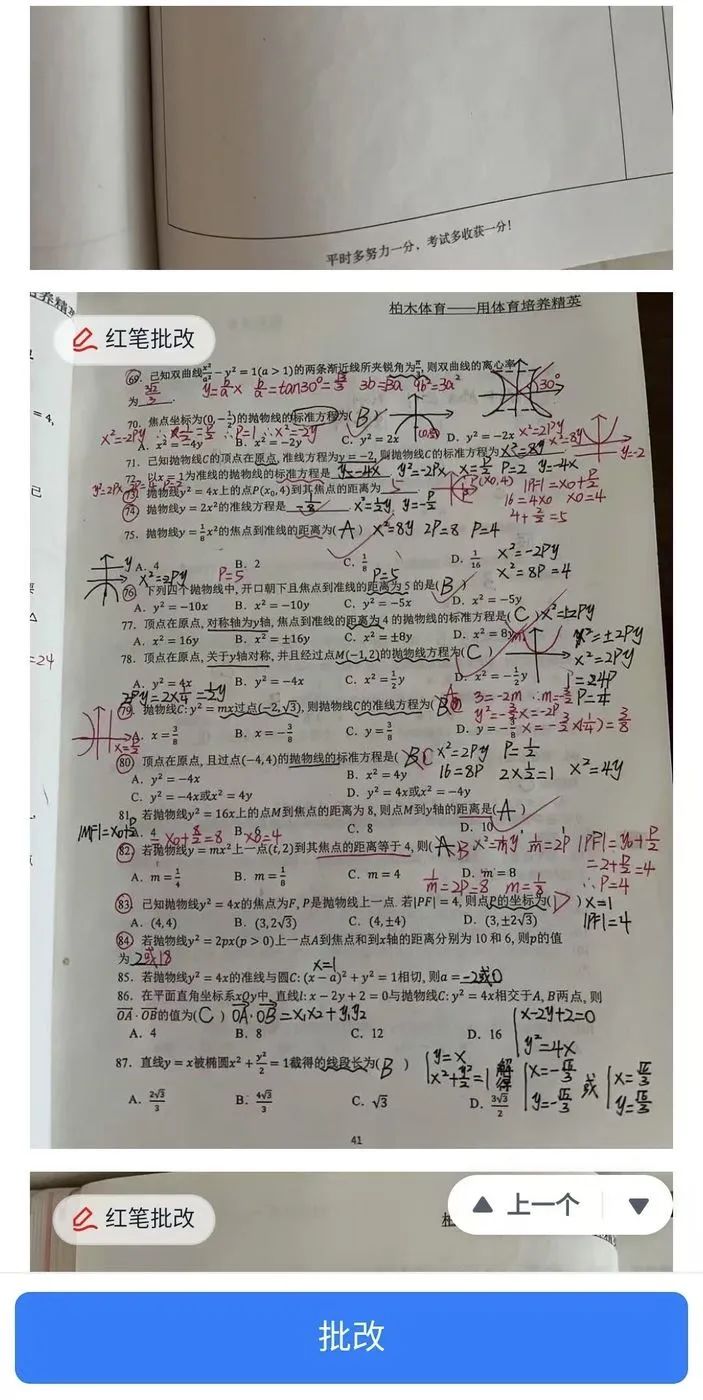 平时多努力一分，考试多收获一分！
柏木体育——用体育培养精英
红笔批改
69. 已知双曲线x²/a² − y² = 1(a > 1)的两条渐近线所夹锐角为π/3, 则双曲线的离心率
为 2√3/3 .
y=b/a x b/a=tan30°=√3/3 3b=√3a 9b²=3a²
30°
70. 焦点坐标为(0, −1/2)的抛物线的标准方程为( B )
x²=-2Py ∴P=1 ∴x²=-2y
A. x² = −4y B. x² = −2y C. y² = 2x D. y² = −2x
x²=2Py x²=8y
71. 已知抛物线C的顶点在原点, 准线方程为y = −2, 则抛物线C的标准方程为 x²=8y
y=-2
72. 以x = 1为准线的抛物线的标准方程是 y²=-4x y²=-2Px x=P/2 P=2 y=-4x
73. 抛物线y² = 4x上的点P(x₀, 4)到其焦点的距离为 5
P(x0,4) |PF|=x0+P/2
16=4x0 x0=4
4+2/2=5
74. 抛物线y = 2x²的准线方程是 -1/8 x²=1/2y y=-P/2
75. 抛物线y = 1/8 x²的焦点到准线的距离为( A ) x²=8y 2P=8 P=4
A. 4 B. 2 C. 1/8 D. 1/16
x²=-2Py
x²=8P=4
x²=2Py P=5 P=5
76. 下列四个抛物线中, 开口朝下且焦点到准线的距离为 5 的是( B )
A. y² = −10x B. x² = −10y C. y² = −5x D. x² = −5y
77. 顶点在原点, 对称轴为y轴, 焦点到准线的距离为 4 的抛物线的标准方程是( C ) x²=±2Py
A. x² = 16y B. x² = ±16y C. x² = ±8y D. x² = 8y
x²=±2Py
78. 顶点在原点, 关于y轴对称, 并且经过点M(−1,2)的抛物线方程为( C )
x²=2Py
A. y² = 4x B. y² = −4x C. x² = 1/2 y D. x² = −1/2 y
1=24P
P=1/4
2Py=2×1/4=1/2y
79. 抛物线C: y² = mx过点(−2, √3), 则抛物线C的准线方程为(
3=-2m ∴m=-3/2
y²=-3/2x=-2P
A. x = 3/8 B. x = −3/8 C. y = 3/8 D. y = −3/8
x=-3/2×(1/4)=3/8
80. 顶点在原点, 且过点(−4,4)的抛物线的标准方程是( C x²=2Py P=1/2
A. y² = −4x B. x² = 4y
16=8P 2×1/2=1 x²=4y
C. y² = −4x或x² = 4y D. y² = 4x或x² = −4y
81. 若抛物线y² = 16x上的点M到焦点的距离为 8, 则点M到y轴的距离是( A )
|MF|=x0+P/2
A. 4 B. 6 C. 8 D. 10
x0+8/2=8 x0=4
82. 若抛物线y = mx²上一点(t, 2)到其焦点的距离等于 4, 则( B x²=1/m y 1/m=2P |PF|=y0+P/2
=2+P/2=4
∴P=4
A. m = 1/4 B. m = 1/8 C. m = 4 D. m = 8
1/m=2P=8 m=1/8
83. 已知抛物线y² = 4x的焦点为F, P是抛物线上一点. 若|PF| = 4, 则点P的坐标为( D ) x=1
A. (4,4) B. (3,2√3) C. (4, ±4) D. (3, ±2√3)
|PF|=4
84. 若抛物线y² = 2px(p > 0)上一点A到焦点和到x轴的距离分别为 10 和 6, 则p的值
为 2或18
x=1
85. 若抛物线y² = 4x的准线与圆C: (x − a)² + y² = 1相切, 则a = -2或0
86. 在平面直角坐标系xOy中, 直线l: x − 2y + 2 = 0与抛物线C: y² = 4x相交于A, B两点, 则
OA · OB的值为( C ) OA·OB=x₁x₂+y₁y₂
A. 4 B. 8 C. 12 D. 16
x-2y+2=0
y²=4x
87. 直线y = x被椭圆x² + y²/2 = 1截得的线段长为( B )
y=x
x²+y²/2=1 解得 x=-√6/3 y=-√6/3 或 x=√6/3 y=√6/3
A. 2√3/3 B. 4√3/3 C. √3 D. 3√3/2
41
红笔批改
上一个
批改